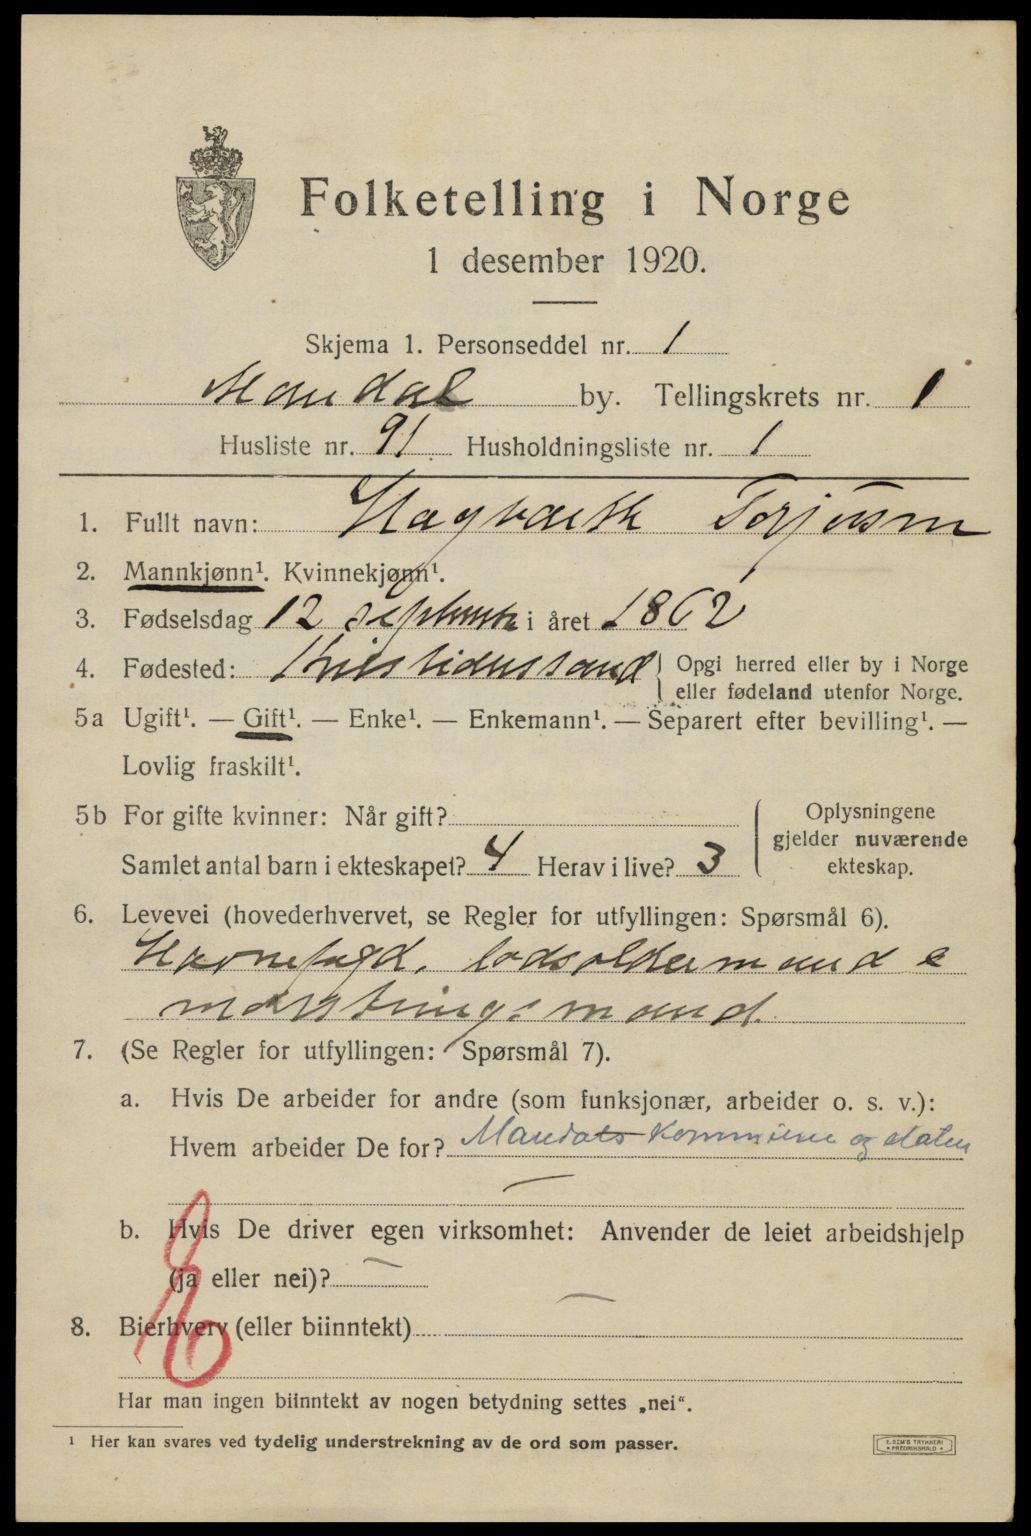 Folketelling i Norge
1 desember 1920.
Skjema 1. Personseddel nr. 1
Mandal by. Tellingskrets nr. 1
Husliste nr. 91 Husholdningsliste nr. 1
1. Fullt navn: Hagbarth Torjusen
2. Mannkjønn¹. Kvinnekjønn¹.
3. Fødselsdag 12 september i året 1862
4. Fødested: Kristianssand Opgi herred eller by i Norge
eller fødeland utenfor Norge.
5a Ugift¹. — Gift¹. — Enke¹. — Enkemann¹. — Separert efter bevilling¹. —
Lovlig fraskilt¹.
5b For gifte kvinner: Når gift? Oplysningene
gjelder nuværende
Samlet antal barn i ekteskapet? 4 Herav i live? 3 ekteskap.
6. Levevei (hovederhvervet, se Regler for utfyllingen: Spørsmål 6).
Havnefogd, lodsoldermand &
mønstringsmand.
7. (Se Regler for utfyllingen: Spørsmål 7).
a. Hvis De arbeider for andre (som funksjonær, arbeider o. s. v.):
Hvem arbeider De for? Mandals kommune og staten
—
b. Hvis De driver egen virksomhet: Anvender de leiet arbeidshjelp
(ja eller nei)? —
8. Bierhverv (eller biinntekt) —
Har man ingen biinntekt av nogen betydning settes „nei".
¹ Her kan svares ved tydelig understrekning av de ord som passer.
E. SEM'S TRYKKERI
FREDRIKSHALD